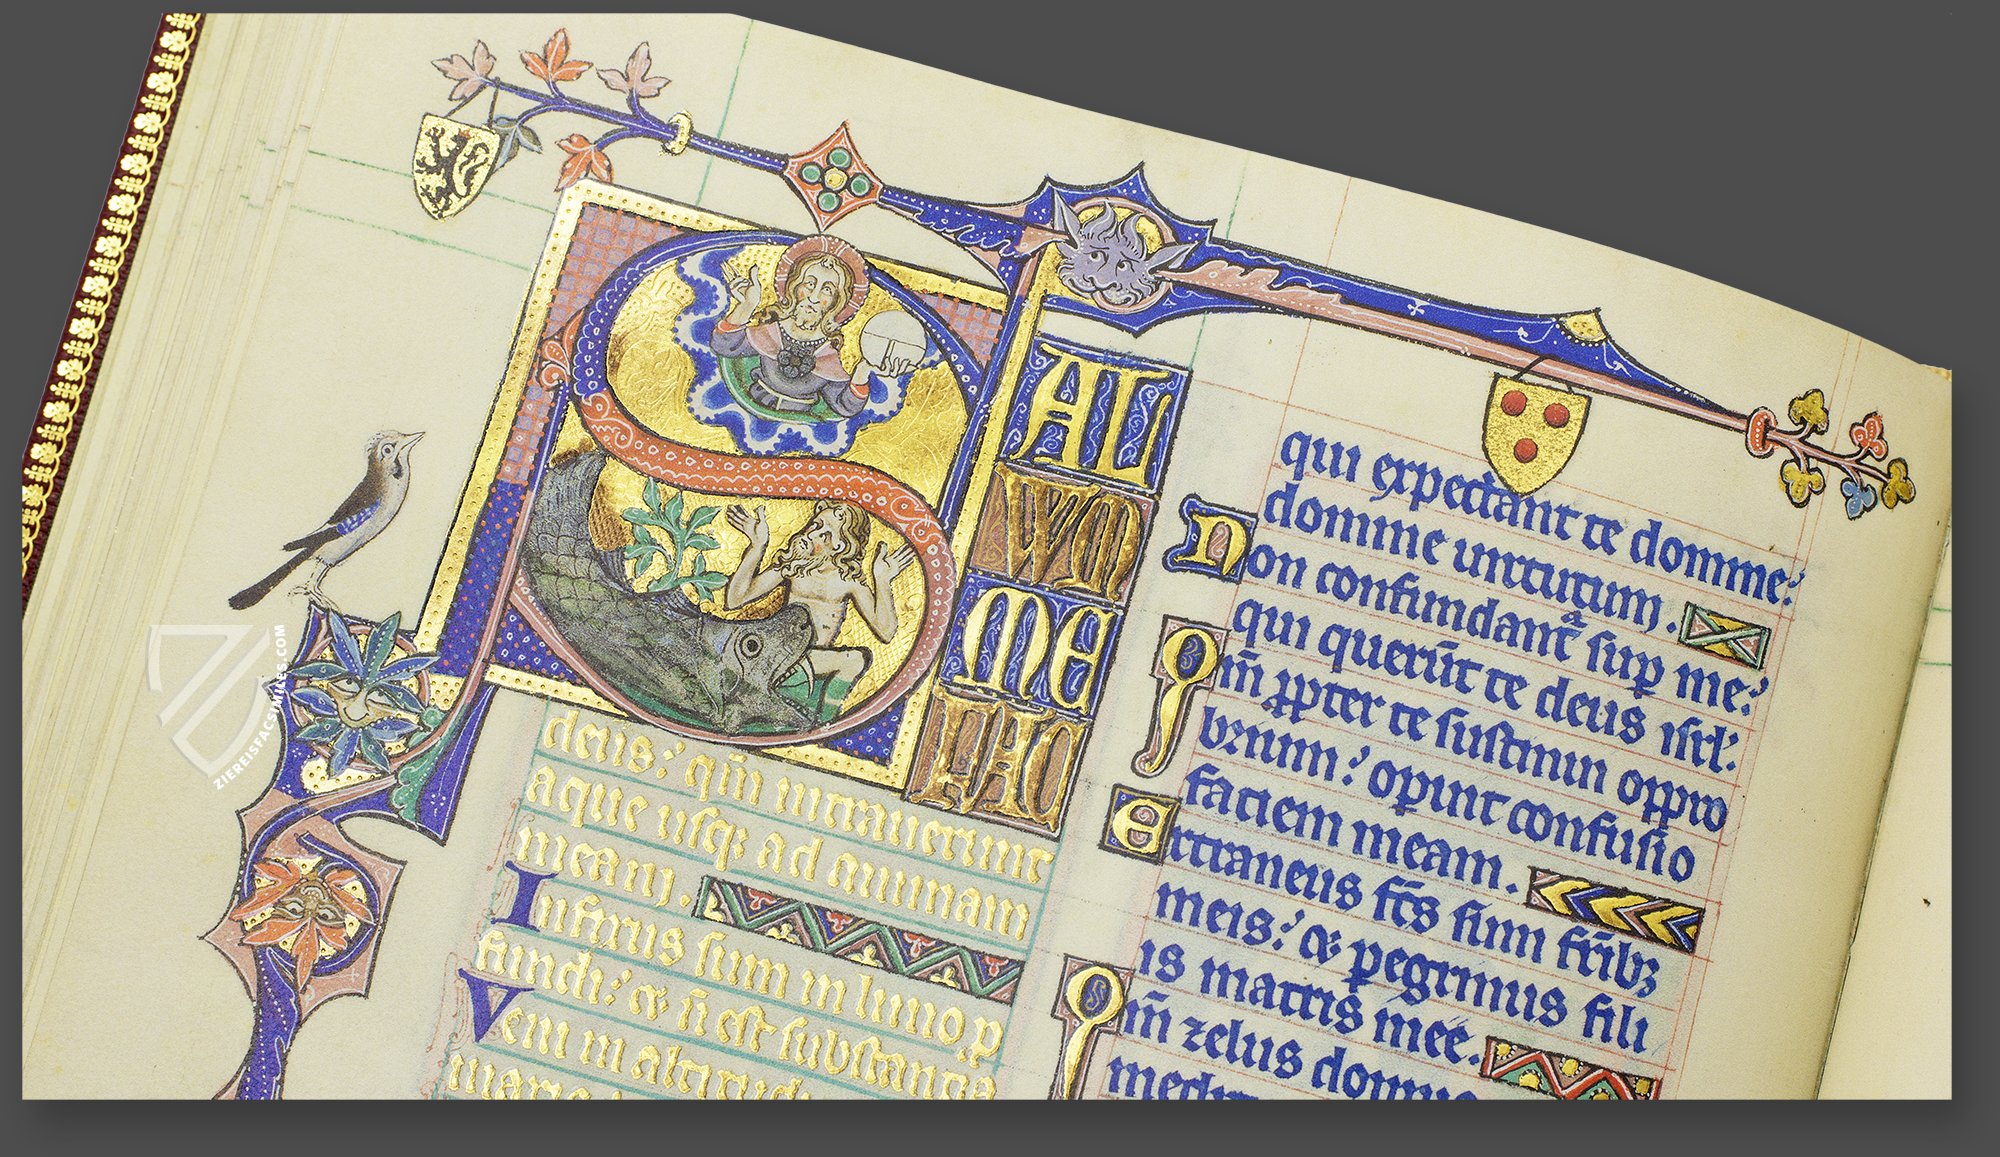 SALVUM ME FAC
deus: qm̄ intraverunt
aque usq; ad animam
meam.
Infixus sum in limo p
fundi: & n̄ est substantia
Veni in altitud
maris
qui expectant te domine:
domine virtutum.
Non confundant͛ sup me:
qui querūt te deus isrl:
Qm̄ ꝓpter te sustinui oppro
brium: opuit confusio
faciem meam.
Extraneus fc̄s sum fr̄ibꝫ
meis: & peregrinus fili
is matris meē.
Qm̄ zelus domus
ZIEREISFACSIMILES.COM